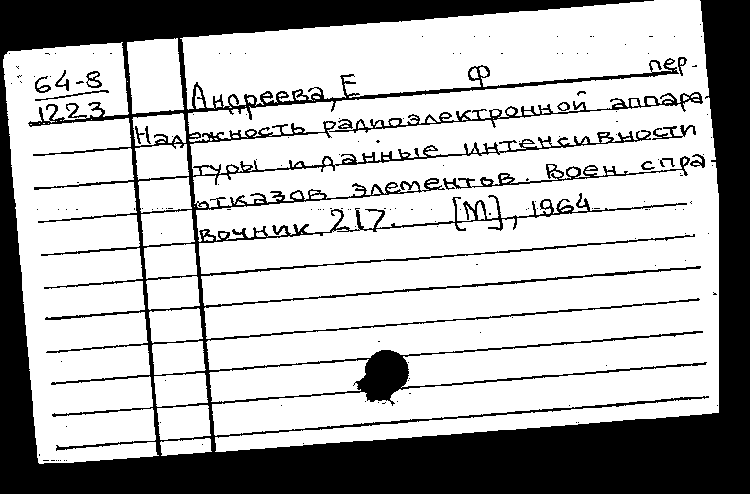 64-8
1223
Андреева, Е Ф пер.
Надежность радиоэлектронной аппара-
туры и данные интенсивности
отказов элементов. Воен. спра-
вочник. 217. [М.], 1964